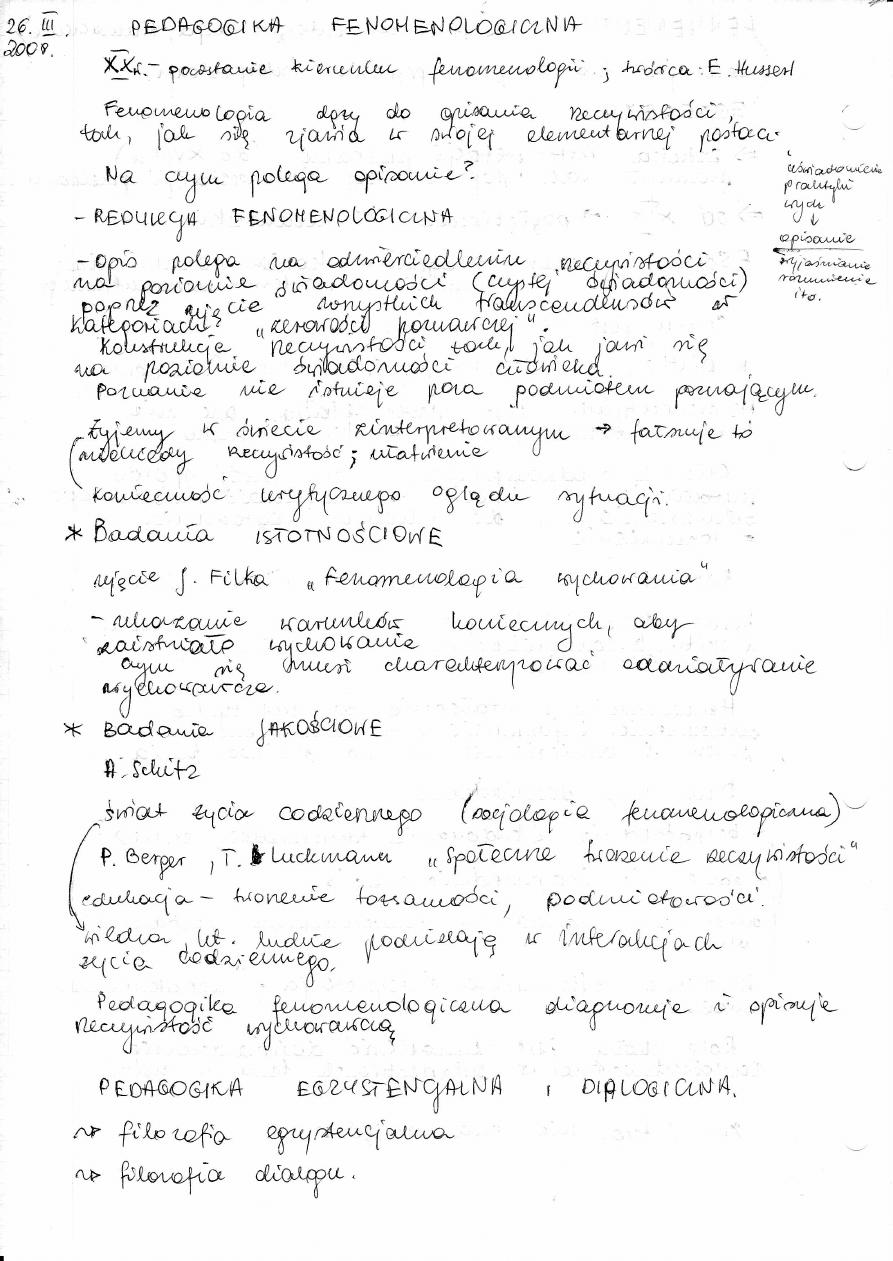 26. III 2008.
PEDAGOGIKA FENOMENOLOGICZNA
XXw. - powstanie kierunku fenomenologii ; twórca: E. Husserl
Fenomenologia dąży do opisania rzeczywistości,
tak, jak się zjawia w swojej elementarnej postaci.
Na czym polega opisanie?
- REDUKCJA FENOMENOLOGICZNA
uświadomienie
praktyki
wych
↓
opisanie
wyjaśnianie
rozumienie
ito.
- Opis polega na odzwierciedleniu rzeczywistości
na poziomie świadomości (czystej świadomości)
poprzez ujęcie wszystkich transcendensów w
kategoriach? "zerowości poznawczej".
Konstrukcja rzeczywistości tak, jak jawi się
na poziomie świadomości człowieka.
Poznanie nie istnieje poza podmiotem poznającym.
Żyjemy w świecie zinterpretowanym → fałszuje to
niekiedy rzeczywistość ; ułatwienie
konieczność krytycznego oglądu sytuacji.
* Badania ISTOTNOŚCIOWE
ujęcie J. Filka "Fenomenologia wychowania"
- ukazanie warunków koniecznych, aby
zaistniało wychowanie
czym się musi charakteryzować oddziaływanie
wychowawcze.
* Badania JAKOŚCIOWE
A. Schitz
świat życia codziennego (socjologia fenomenologiczna)
P. Berger, T. Luckmann "Społeczne tworzenie rzeczywistości"
edukacja - tworzenie tożsamości, podmiotowości.
wiedza, kt. ludzie podzielają w interakcjach
życia codziennego.
Pedagogika fenomenologiczna diagnozuje i opisuje
rzeczywistość wychowawczą
PEDAGOGIKA EGZYSTENCJALNA I DIALOGICZNA.
~> filozofia egzystencjalna
~> filozofia dialogu.